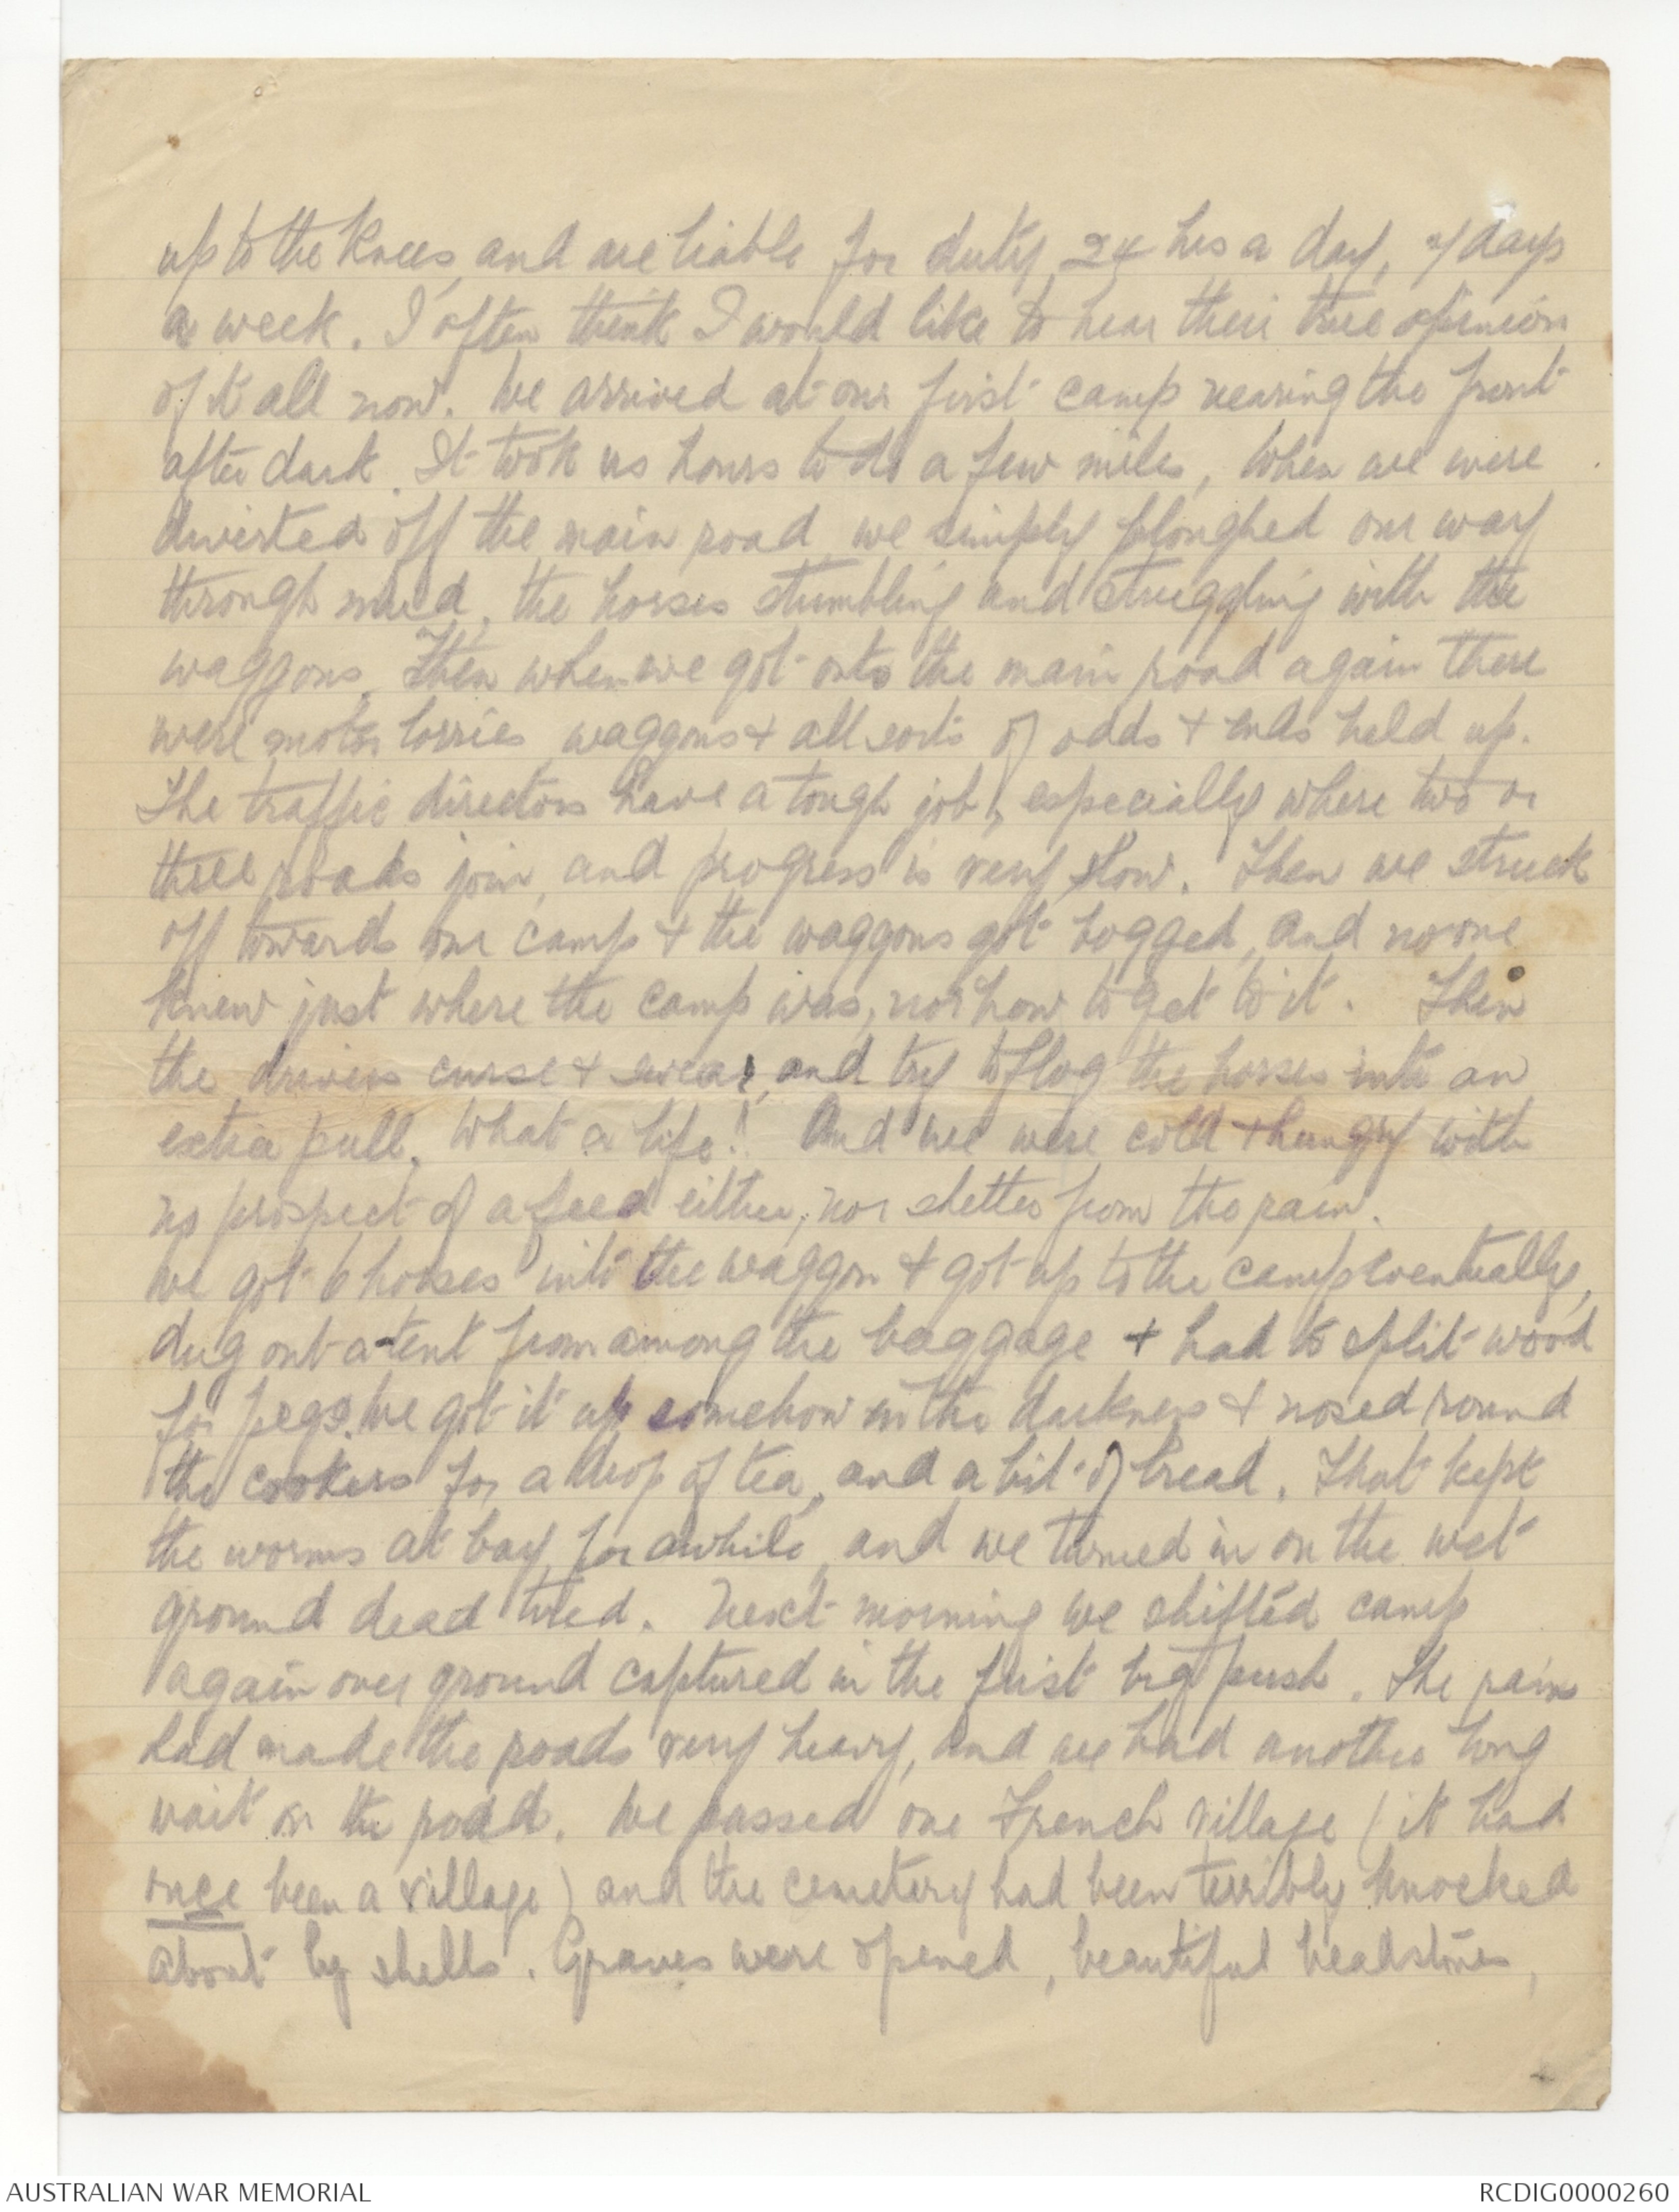 up to the knees, and are liable for duty 24 hrs a day, 7 days
a week. I often think I would like to hear their true opinion
of it all now. We arrived at our first camp nearing the front
after dark. It took us hours to do a few miles, when we were
diverted off the main road we simply ploughed our way
through mud, the horses stumbling and struggling with the
waggons. Then when we got onto the main road again there
were motor lorries, waggons & all sorts of odds & ends held up.
The traffic directors have a tough job, especially where two or
three roads join, and progress is very slow. Then we struck
off towards our camp & the waggons got bogged, and no one
knew just where the camp was, nor how to get to it. Then
the drivers curse & swear, and try to flog the horses into an
extra pull. What a life! And we were cold & hungry with
no prospect of a feed either, nor shelter from the rain.
We got 6 horses into the waggon & got up to the camp eventually,
dug out a tent from among the baggage & had to split wood
for pegs. We got it up somehow in the darkness & nosed round
the cookers for a drop of tea, and a bit of bread. That kept
the worms at bay for awhile, and we turned in on the wet
ground dead tired. Next morning we shifted camp
again over ground captured in the first big push. The rain
had made the roads very heavy, and we had another long
wait on the road. We passed one French village (it had
once been a village) and the cemetery had been terribly knocked
about by shells. Graves were opened, beautiful headstones,
AUSTRALIAN WAR MEMORIAL
RCDIG0000260